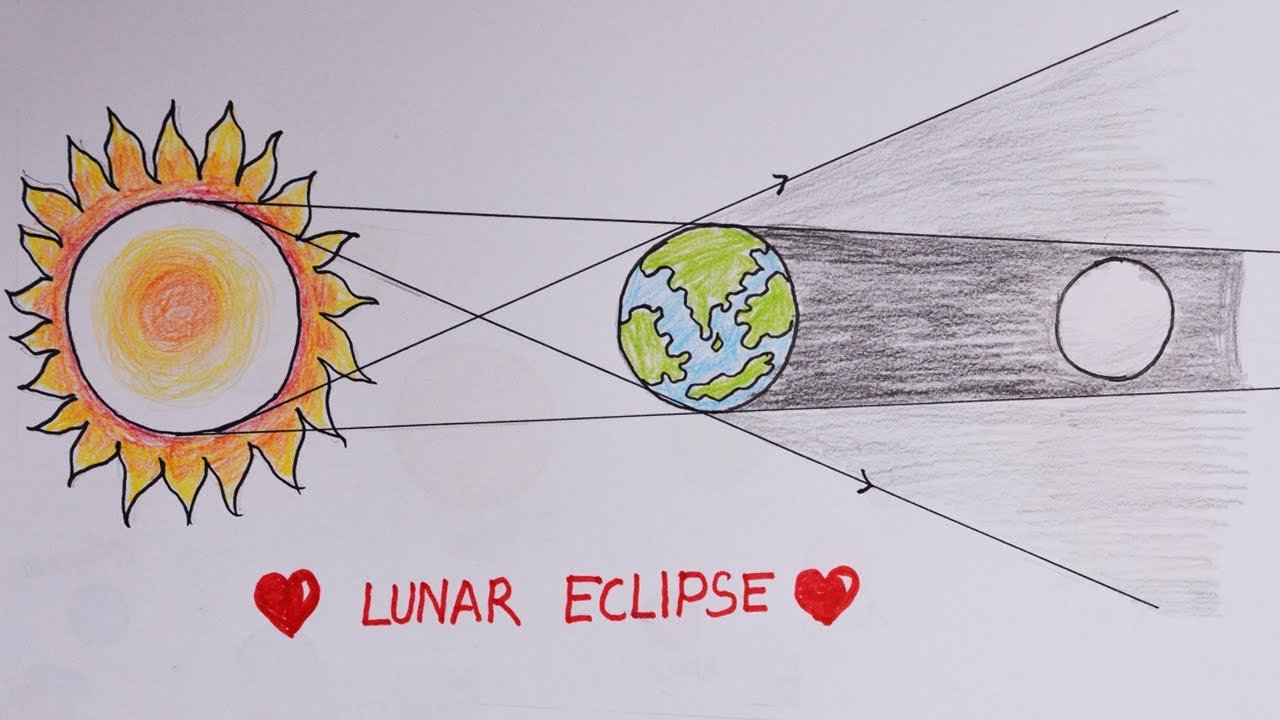 LUNAR ECLIPSE